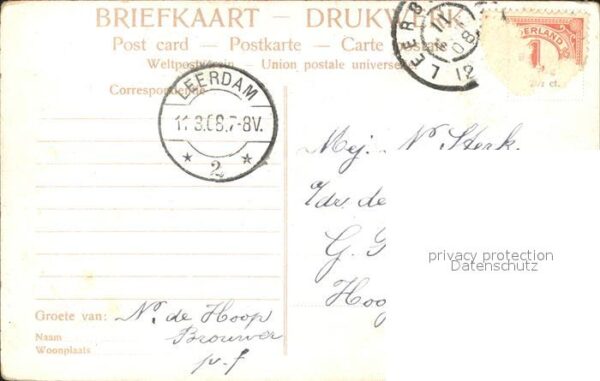 BRIEFKAART – DRUKW
Post card – Postkarte – Carte postale
Weltpostverein – Union postale universe
Correspondentie
LEERDAM
11.3.08.7-8V.
2
LEER
08
12
DERLAND
1
ct.
Mej. N. Sterk.
de
G.
Hoo
privacy protection
Datenschutz
Groete van: N. de Hoop
Naam Brouwer
Woonplaats p.f